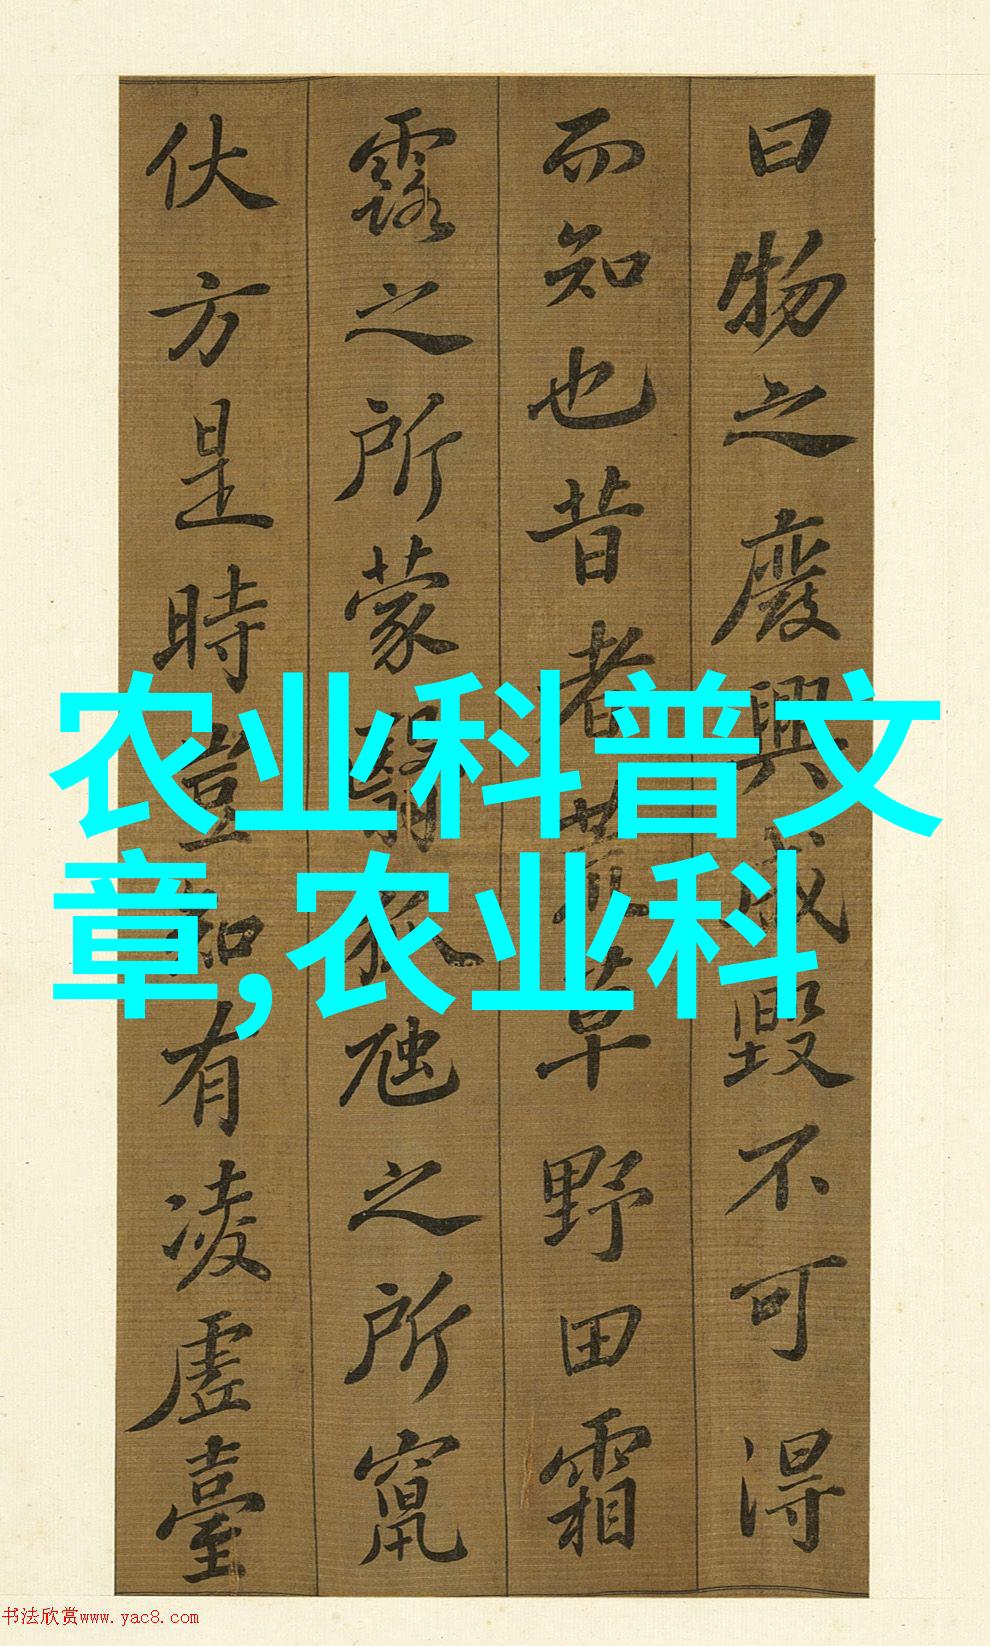 曰物之廢興成毀不可得
而知也昔者荒草野田霜
露之所蒙翳狐虺之所竄
伏方是時豈知有凌虛臺
农业科普文
章,农业科
书法欣赏www.yac8.com